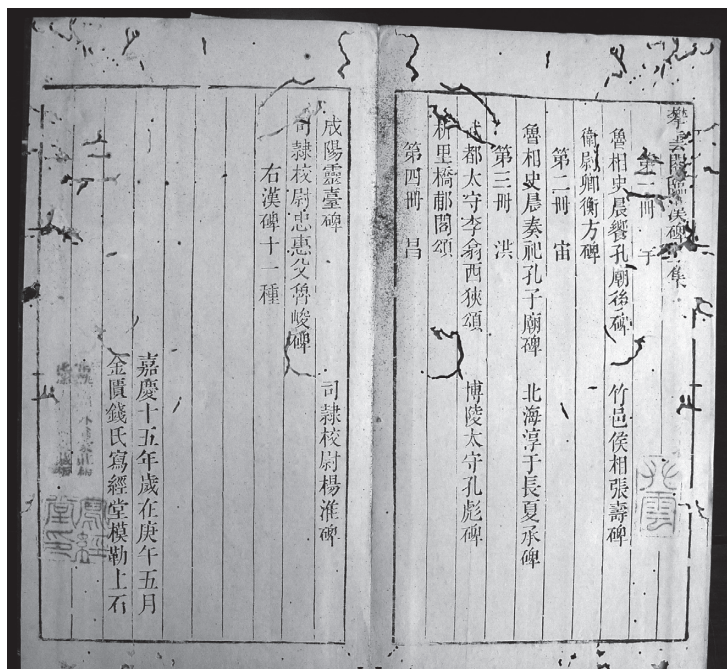 攀雲閣臨漢碑集
第冊
魯相史晨饗孔廟後碑 竹邑侯相張壽碑
衛尉卿衡方碑
第二冊 宙
魯相史晨奏祀孔子廟碑 北海淳于長夏承碑
第三冊 洪
武都太守李翕西狹頌 博陵太守孔彪碑
析里橋郙閣頌
第四冊 昌
成陽靈臺碑 司隸校尉楊淮碑
司隸校尉忠惠父魯峻碑
右漢碑十一種
嘉慶十五年歲在庚午五月
金匱錢氏寫經堂模勒上石
寫經堂印